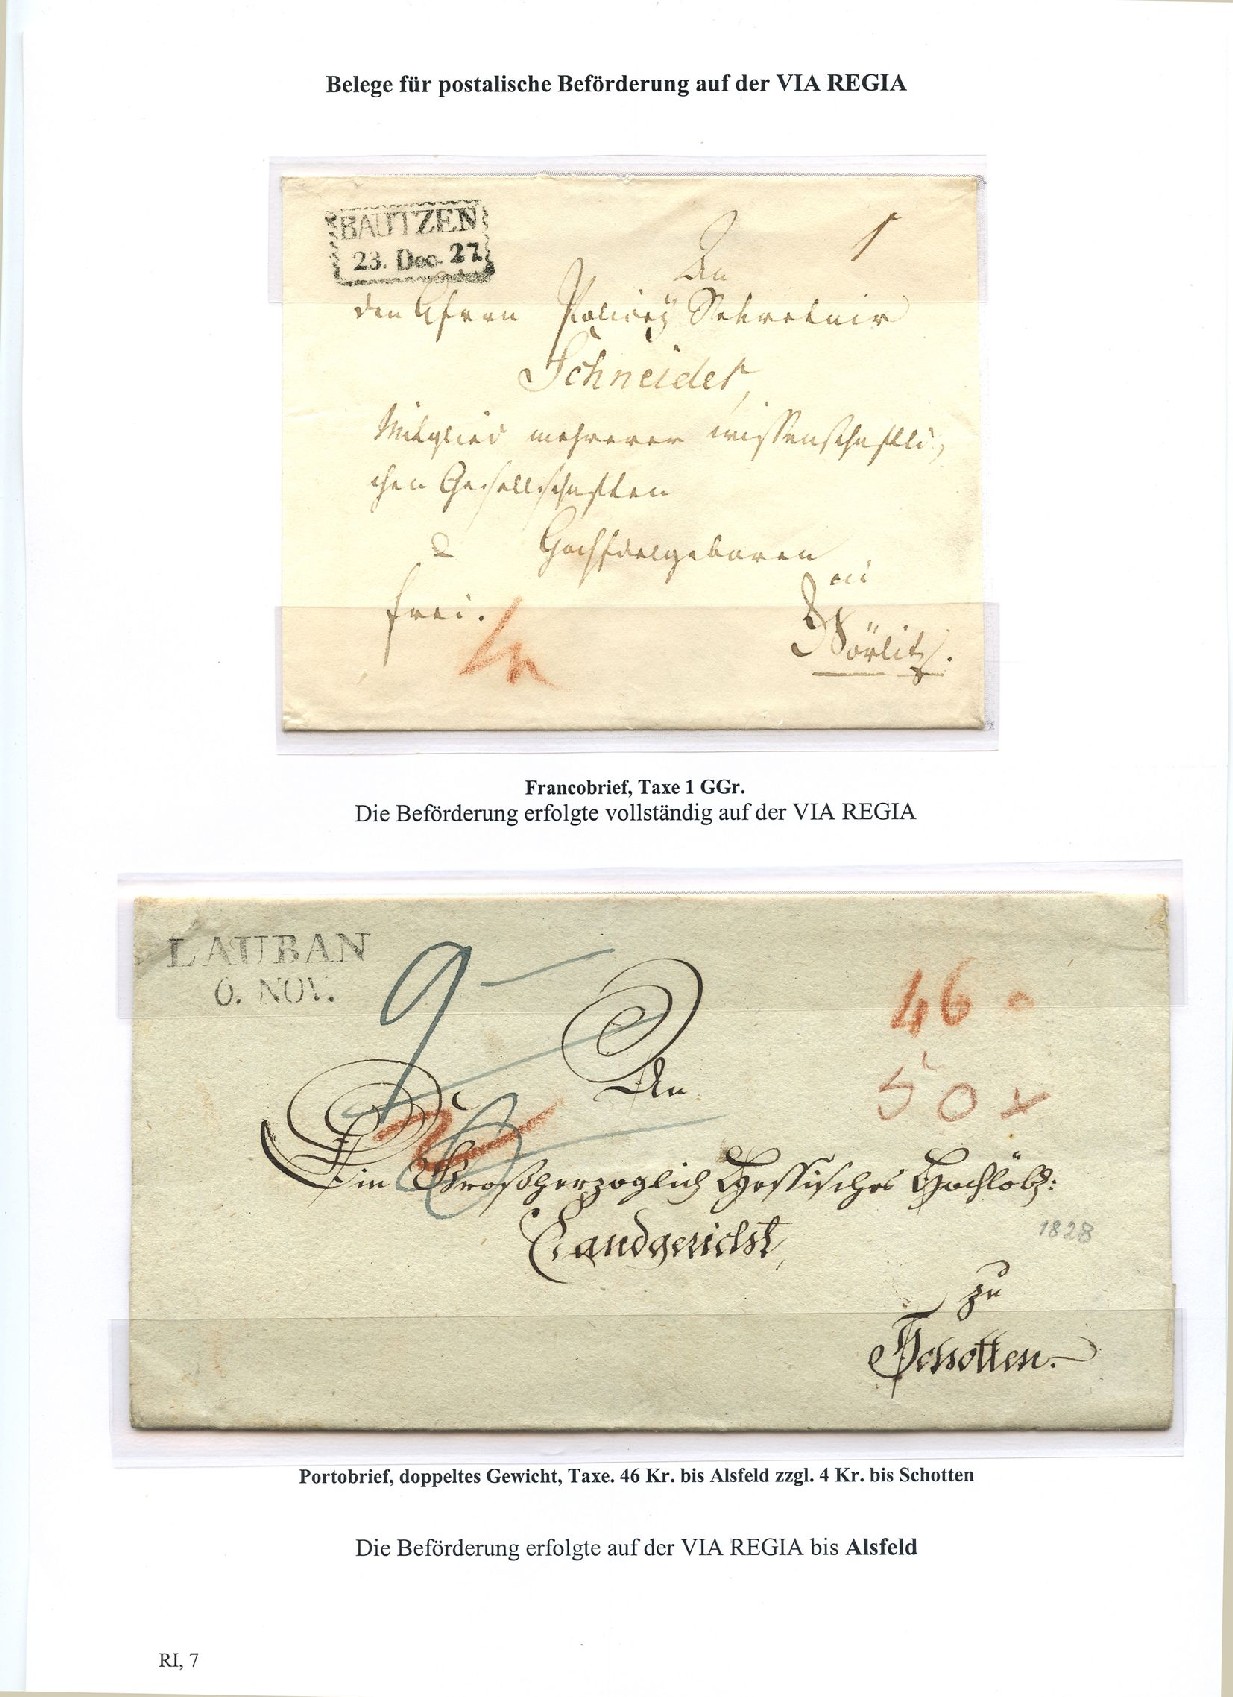 Belege für postalische Beförderung auf der VIA REGIA
BAUTZEN
23. Dec. 27
1
An
den Herrn Policey Sekretair
Schneider,
Mitglied mehrerer wissenschaftli-
chen Gesellschaften
Hochedelgeboren
frei.
zu
Görlitz.
Francobrief, Taxe 1 GGr.
Die Beförderung erfolgte vollständig auf der VIA REGIA
LAUBAN
6. NOV.
9
46
50 x
An
Ein Großherzoglich Hessisches Hochlöbl:
Landgericht,
1828
zu
Schotten.
Portobrief, doppeltes Gewicht, Taxe. 46 Kr. bis Alsfeld zzgl. 4 Kr. bis Schotten
Die Beförderung erfolgte auf der VIA REGIA bis Alsfeld
RI, 7